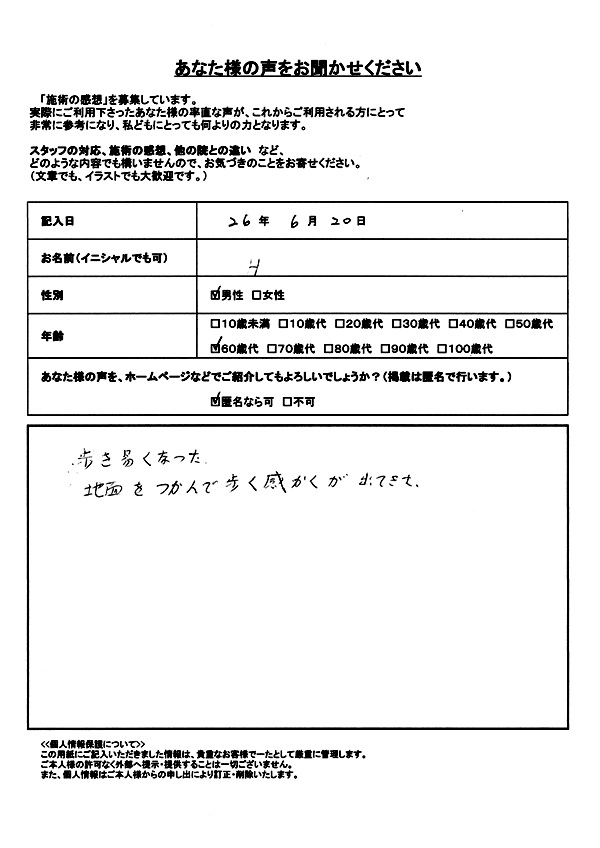 あなた様の声をお聞かせください
「施術の感想」を募集しています。
実際にご利用下さったあなた様の率直な声が、これからご利用される方にとって
非常に参考になり、私どもにとっても何よりの力となります。
スタッフの対応、施術の感想、他の院との違い など、
どのような内容でも構いませんので、お気づきのことをお寄せください。
（文章でも、イラストでも大歓迎です。）
記入日 26年 6月 20日
お名前（イニシャルでも可） H
性別 ☑男性 □女性
年齢 □10歳未満 □10歳代 □20歳代 □30歳代 □40歳代 □50歳代
☑60歳代 □70歳代 □80歳代 □90歳代 □100歳代
あなた様の声を、ホームページなどでご紹介してもよろしいでしょうか？（掲載は匿名で行います。）
☑匿名なら可 □不可
歩き易くなった.
地面をつかんで歩く感かくが出てきた.
<<個人情報保護について>>
この用紙にご記入いただきました情報は、貴重なお客様でーたとして厳重に管理します。
ご本人様の許可なく外部へ提示・提供することは一切ございません。
また、個人情報はご本人様からの申し出により訂正・削除いたします。